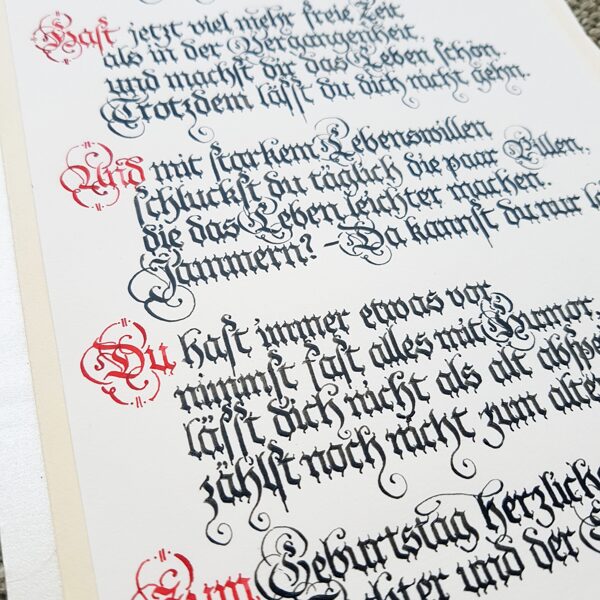 Hast jetzt viel mehr freie Zeit
als in der Vergangenheit,
und machst dir das Leben schön.
Trotzdem läßt du dich nicht gehn.
Und mit starkem Lebenswillen
schluckst du täglich die paar Pillen,
die das Leben leichter machen.
Jammern? - Da kannst du nur
Du hast immer etwas vor,
nimmst fast alles mit Humor,
läßt dich nicht als alt
zählst noch nicht zum
Zum Geburtstag
und der